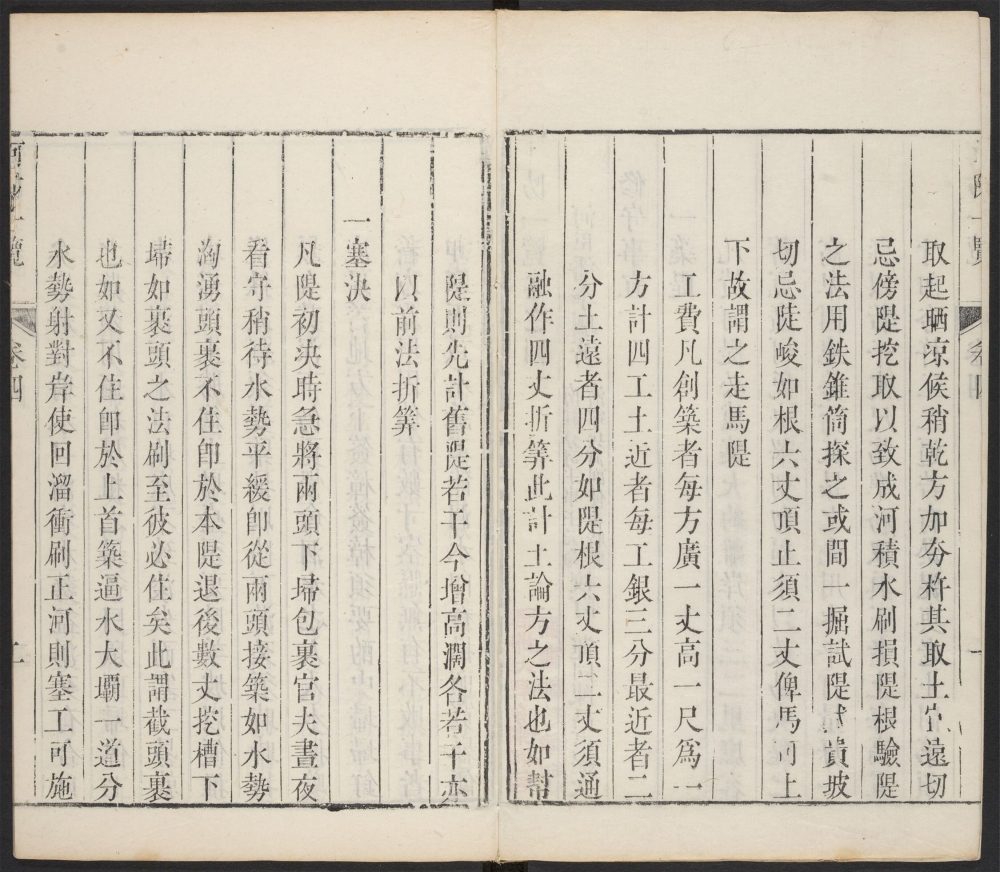 取起晒涼候稍乾方加夯杵其取土宜遠切
忌傍隄挖取以致成河積水刷損隄根驗隄
之法用鉄錐筒探之或間一掘試隄式貴坡
切忌陡峻如根六丈頂止須二丈俾馬可上
下故謂之走馬隄
工費凡創築者每方廣一丈高一尺爲一
方計四工土近者每工銀三分最近者二
分土遠者四分如隄根六丈頂二丈須通
融作四丈折筭此計土論方之法也如幫
隄則先計舊隄若干今增高濶各若干亦
以前法折筭
一塞決
凡隄初決時急將兩頭下埽包裹官夫晝夜
看守稍待水勢平緩即從兩頭接築如水勢
洶湧頭裹不住即於本隄退後數丈挖槽下
埽如裹頭之法刷至彼必住矣此謂截頭裹
也如又不住即於上首築逼水大壩一道分
水勢射對岸使回溜衝刷正河則塞工可施
一覽
卷四
二